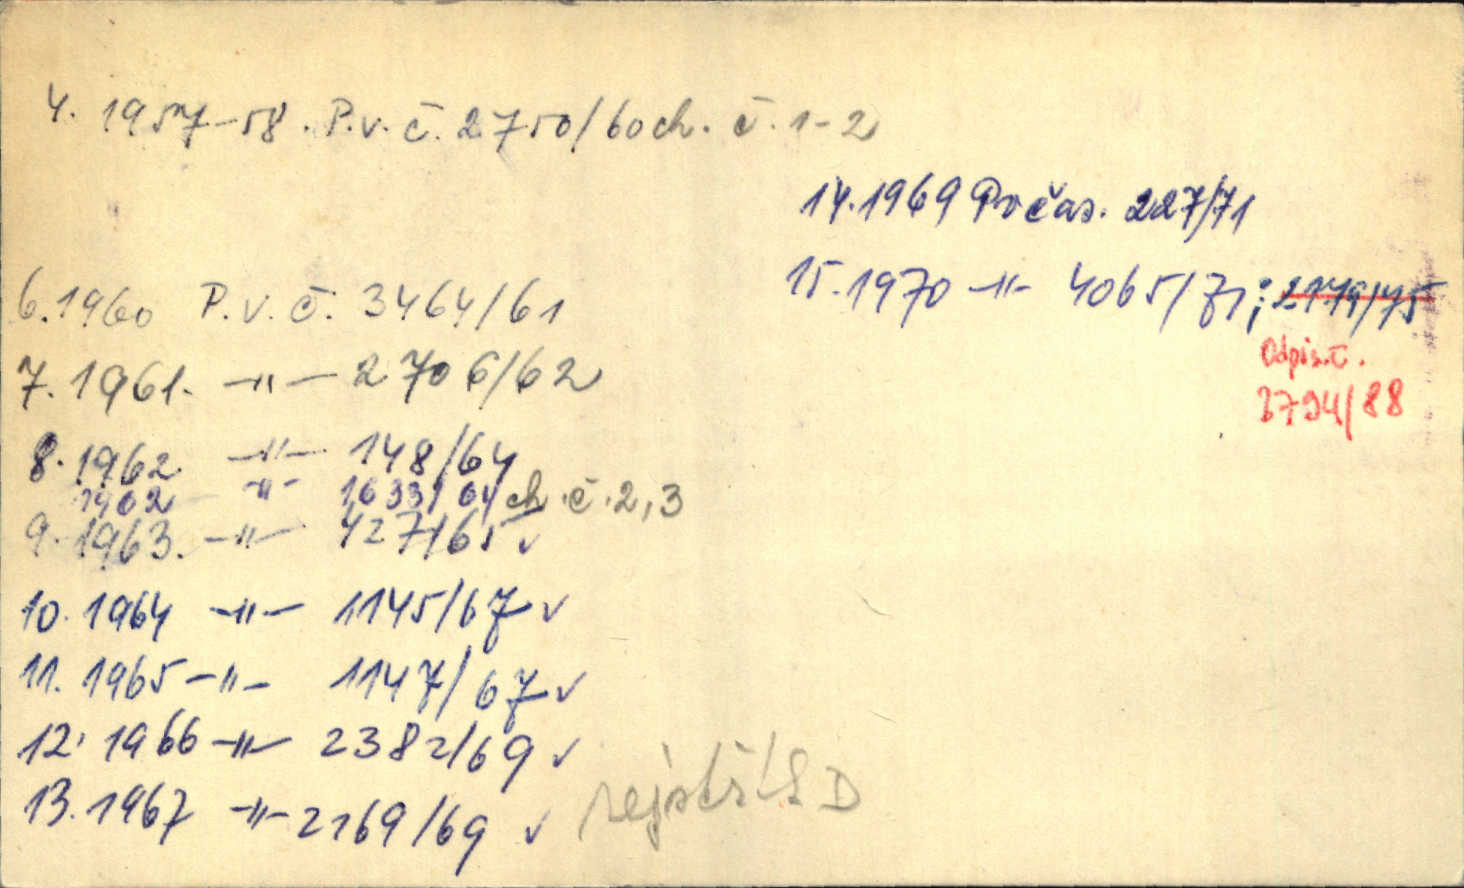 4. 1957-58. P.v.č. 2750/60 ch. č. 1-2
6. 1960 P.v.č. 3464/61
7. 1961. -"- 2706/62
8. 1962. -"- 148/64
1962 -"- 1633/64 ch. č. 2,3
9. 1963. -"- 427/65 ✓
10. 1964 -"- 1145/67 ✓
11. 1965 -"- 1147/67 ✓
12. 1966 -"- 2382/69 ✓
13. 1967 -"- 2169/69 ✓
14. 1969 Počas. 227/71
15. 1970 -"- 4065/71; 2179/75
Odpis.č.
2794/88